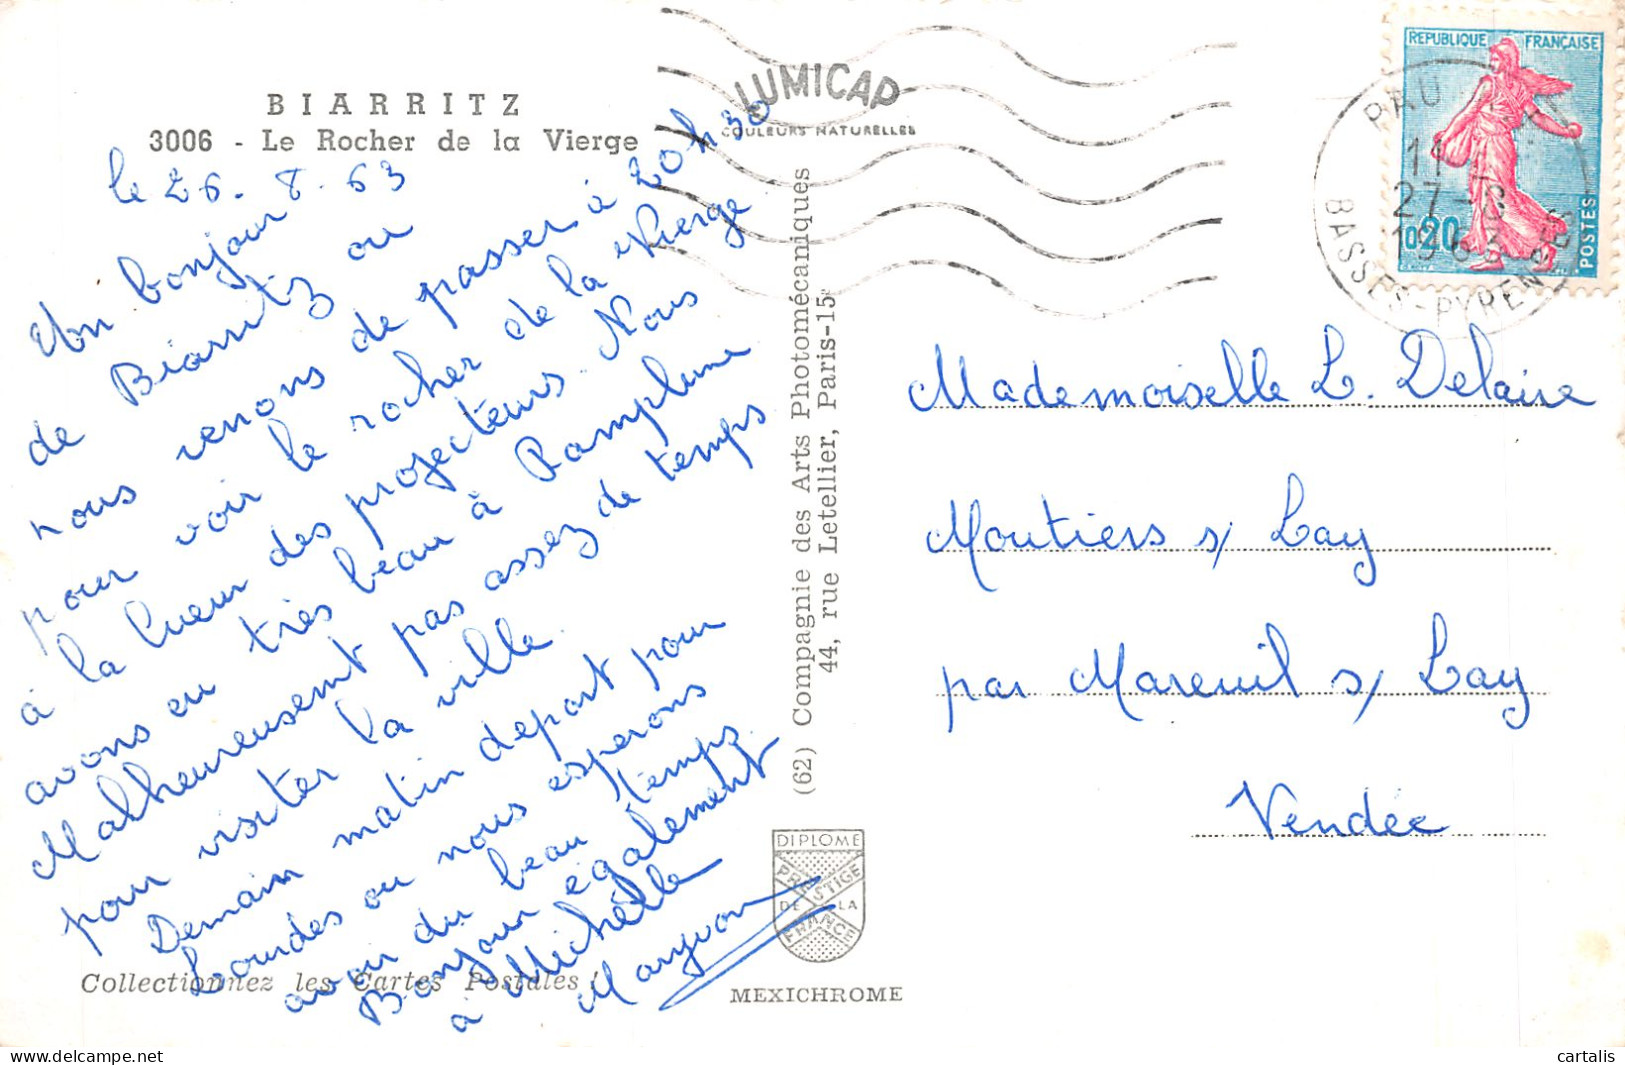 BIARRITZ
3006 - Le Rocher de la Vierge
LUMICAP
COULEURS NATURELLES
le 26. 8. 63
Un bonjour
de Biarritz ou
nous venons de passer à 20h30
pour voir le rocher de la Vierge
à la lueur des projecteurs. Nous
avons eu très beau à Pamplune
Malheureusemt pas assez de temps
pour visiter la ville.
Demain matin depart pour
Lourdes ou nous esperons
avoir du beau temps.
Bonjour également
à Michèle
Maryvon
Collectionnez les Cartes Postales !
(62) Compagnie des Arts Photomécaniques
44, rue Letellier, Paris-15e
DIPLOME
PRESTIGE
DE LA
FRANCE
MEXICHROME
REPUBLIQUE FRANÇAISE
0,20
POSTES
PAU
11
27-8
1963
BASSES-PYRENEES
Mademoiselle L. Delaire
Moutiers s/ Lay
par Mareuil s/ Lay
Vendée
www.delcampe.net
cartalis